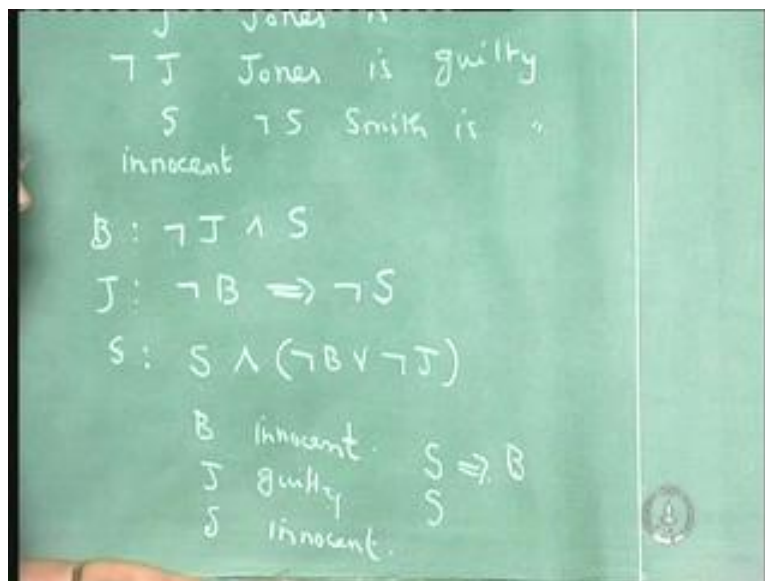 J Jones is
¬ J Jones is guilty
S ¬ S Smith is "
innocent
B : ¬ J ∧ S
J : ¬ B ⇒ ¬ S
S : S ∧ (¬ B ∨ ¬ J)
B innocent.
J guilty
S innocent.
S ⇒ B
S